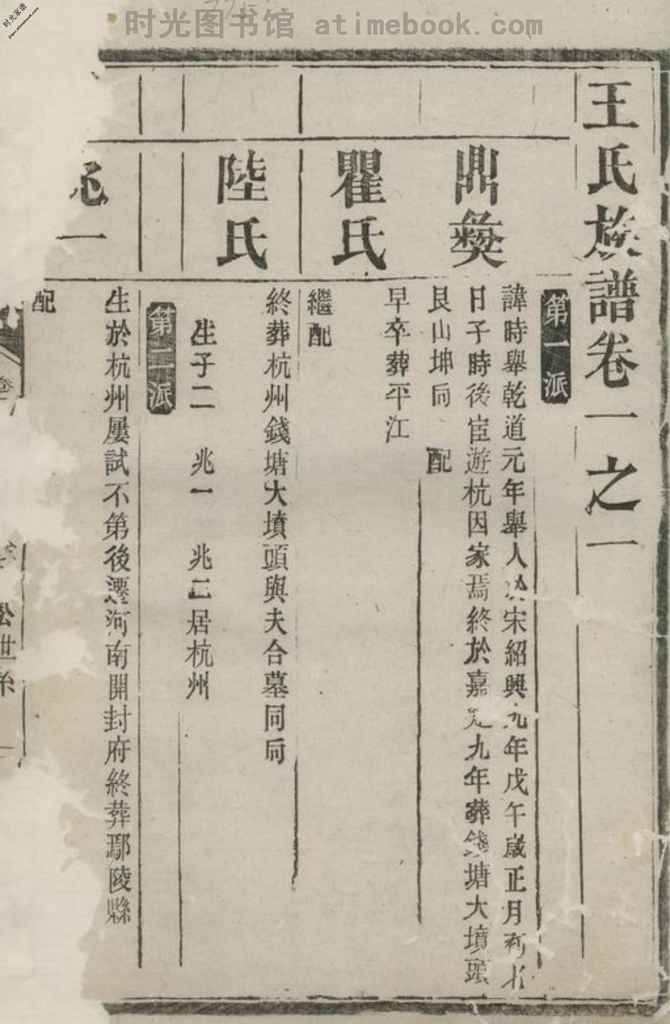 时光图书馆 atimebook.com
王氏族譜卷一之一
第一派
鼎彝
諱時舉乾道元年舉人 宋紹興九年戊午歲正月
日子時後宦遊杭因家焉終於嘉定九年葬錢塘大墳頭
艮山坤向 配
瞿氏
早卒葬平江
繼配
陸氏
終葬杭州錢塘大墳頭與夫合墓同向
生子二 兆一 兆二居杭州
第二派
兆一
生於杭州屢試不第後遷河南開封府終葬鄢陵縣
配